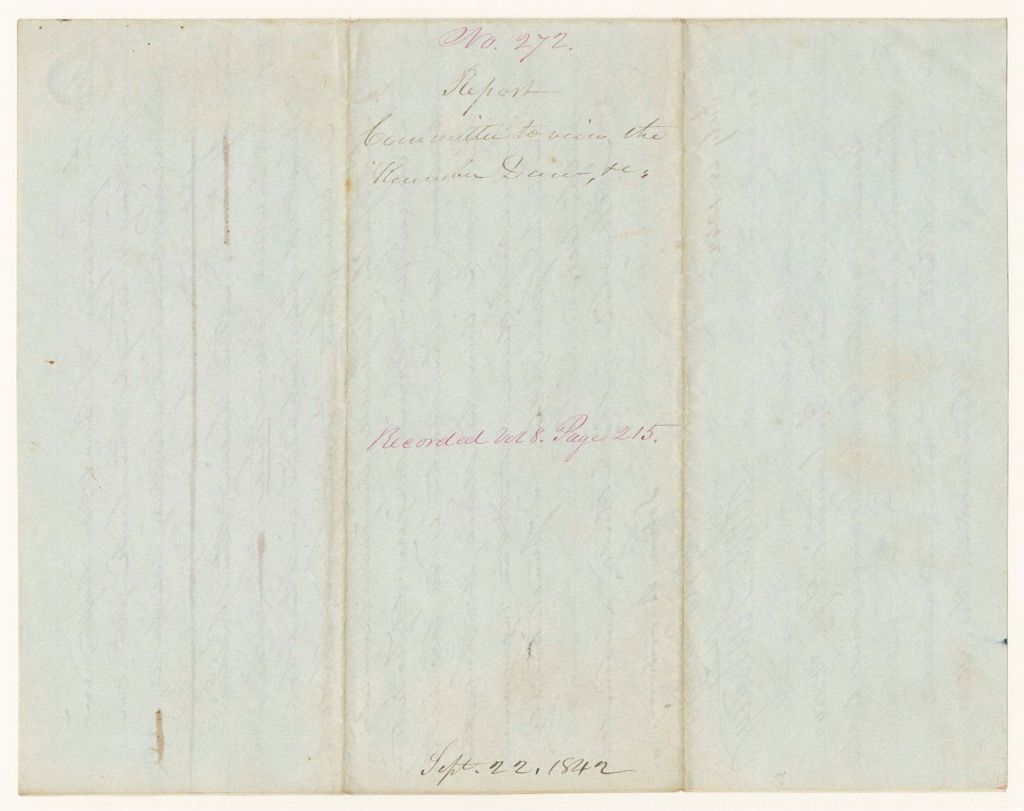 No. 272.
Report
Committee to view the
Kennebec Dam, &c.
Recorded Vol 8. Page 215.
Sept. 22. 1842